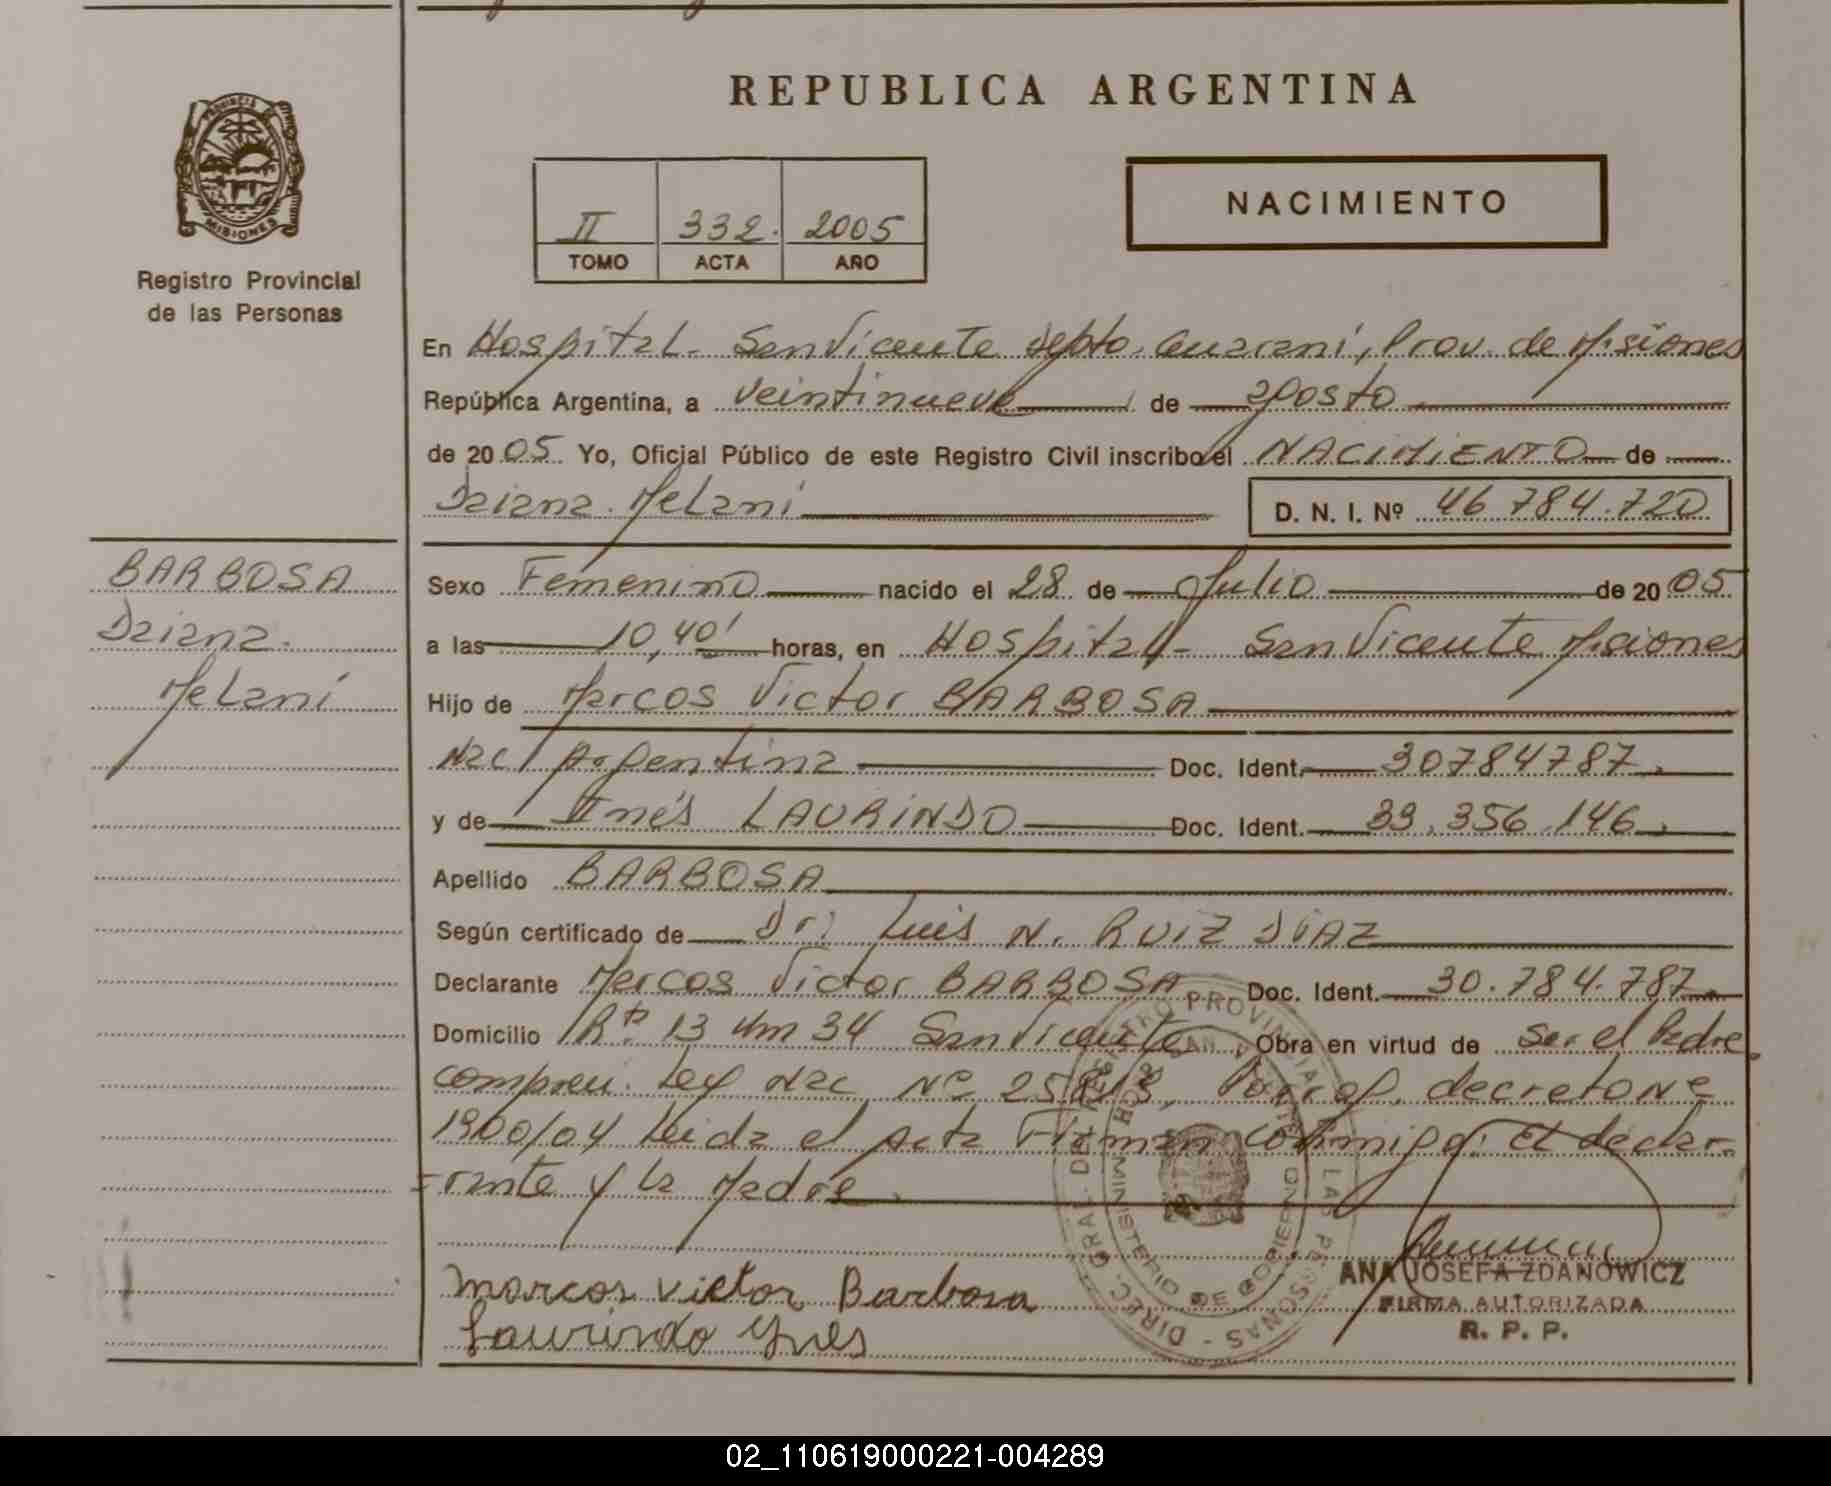 REPUBLICA ARGENTINA
PROVINCIA DE
MISIONES
Registro Provincial
de las Personas
II 332. 2005
TOMO ACTA AÑO
NACIMIENTO
En Hospital - San Vicente Depto. Guaraní, Prov. de Misiones
República Argentina, a veintinueve de agosto
de 2005 Yo, Oficial Público de este Registro Civil inscribo el NACIMIENTO de
Daiana Melani
D. N. I. Nº 46 784.720
BARBOSA
Daiana
Melaní
Sexo Femenino nacido el 28 de Julio de 2005
a las 10,40' horas, en Hospital - San Vicente Misiones
Hijo de Marcos Victor BARBOSA
Nac Argentina Doc. Ident. 30784787.
y de Inés LAURINDO Doc. Ident. 33.356.146.
Apellido BARBOSA
Según certificado de Dr: Luis N. RUIZ DIAZ
Declarante Marcos Victor BARBOSA Doc. Ident. 30.784.787.
Domicilio Rta 13 Km 34 San Vicente Obra en virtud de Ser el Padre
Ley Nac Nº decreto Nº
1900/04 Leida el acta Firman conmigo: El decla-
rante y la Madre.
Marcos Victor Barbosa
Laurindo Ynes
DIREC. GRAL. DEL REGISTRO PROVINCIAL DE LAS PERSONAS
MINISTERIO DE GOBIERNO
ANA JOSEFA ZDANOWICZ
FIRMA AUTORIZADA
R. P. P.
02_110619000221-004289